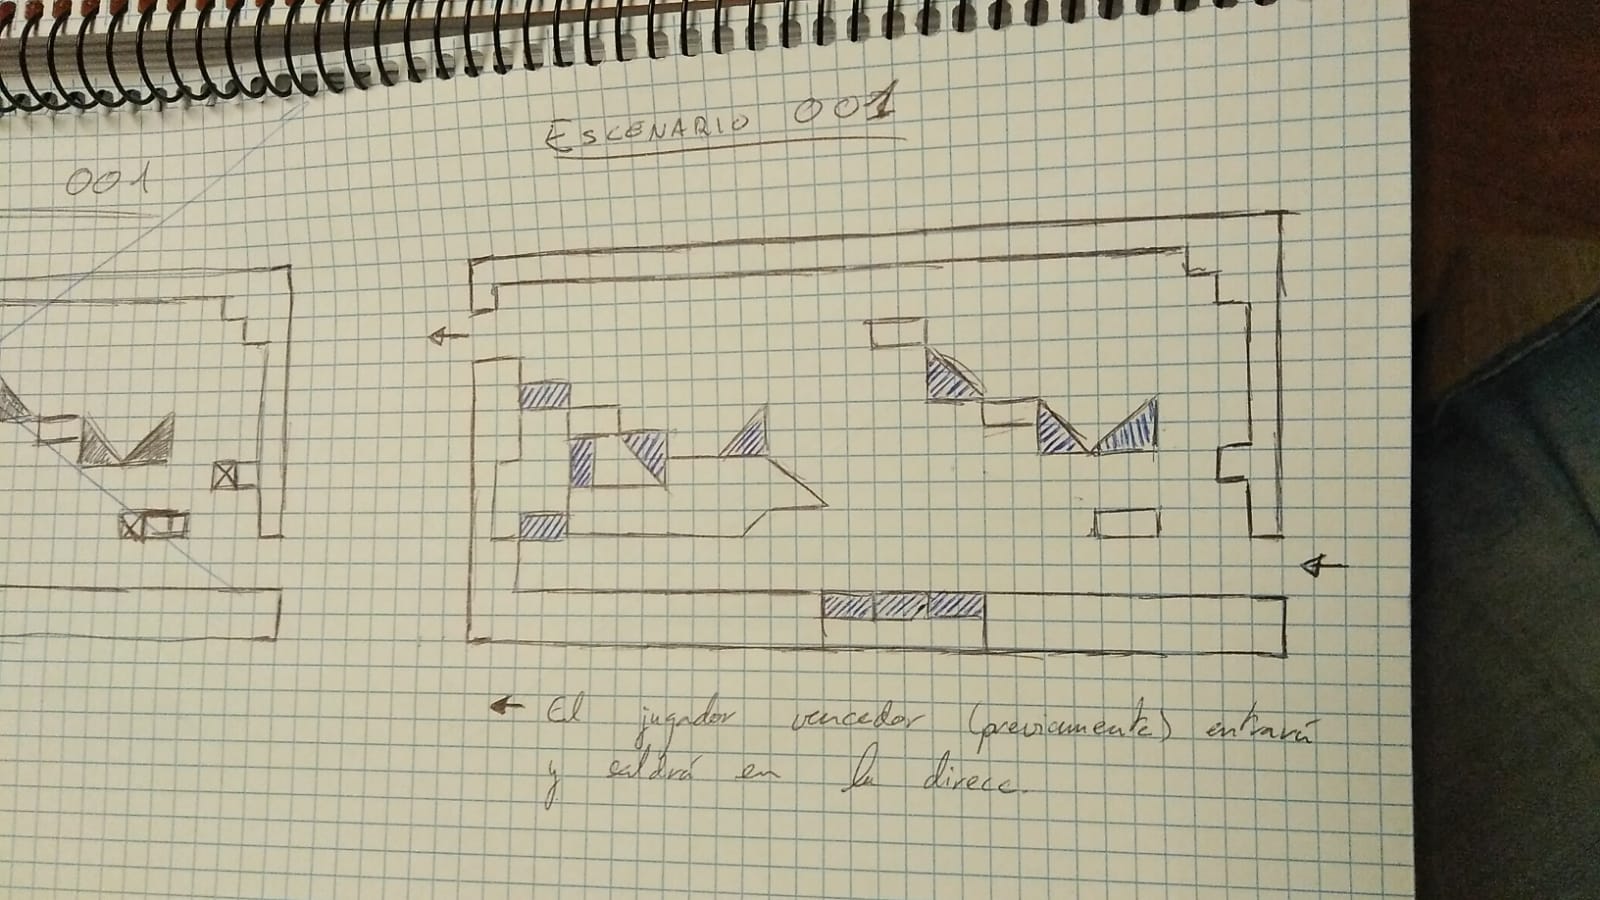 ESCENARIO 001
001
← El jugador vencedor (previamente) entrará
y saldrá en la direcc.